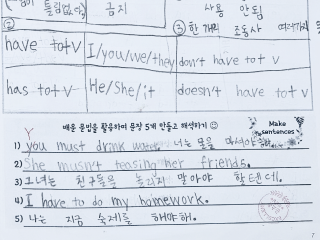 틀림없다)
금지
사용 안됨
③ 한 개의 조동사 여러가지
have to+v
I/you/we/they
don't have to v
has to+v
He/She/it
doesn't have to+v
배운 문법을 활용하여 문장 5개 만들고 해석하기 ☺
Make sentences
1) you must drink water 너는 물을 마셔야
2) She musn't teasing her friends.
3) 그녀는 친구들을 놀리지 말아야 할텐데.
4) I have to do my homework.
5) 나는 지금 숙제를 해야해.
7